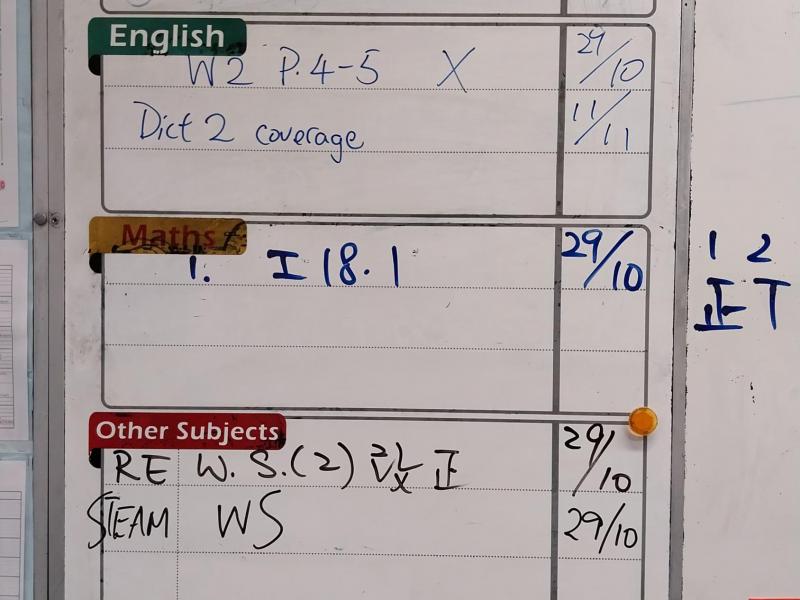 English
W2 P.4-5 X 29/10
Dict 2 coverage 11/11
Maths
1. I 18.1 29/10
1 2
正 T
Other Subjects
RE W.S.(2) 改正 29/10
STEAM WS 29/10